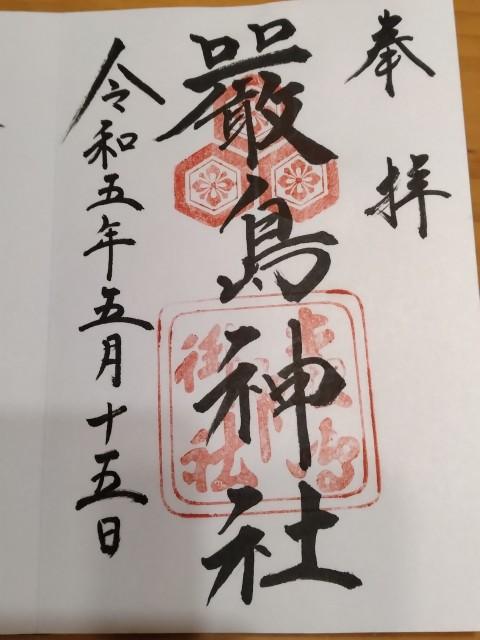 奉拝
嚴島神社
令和五年五月十五日